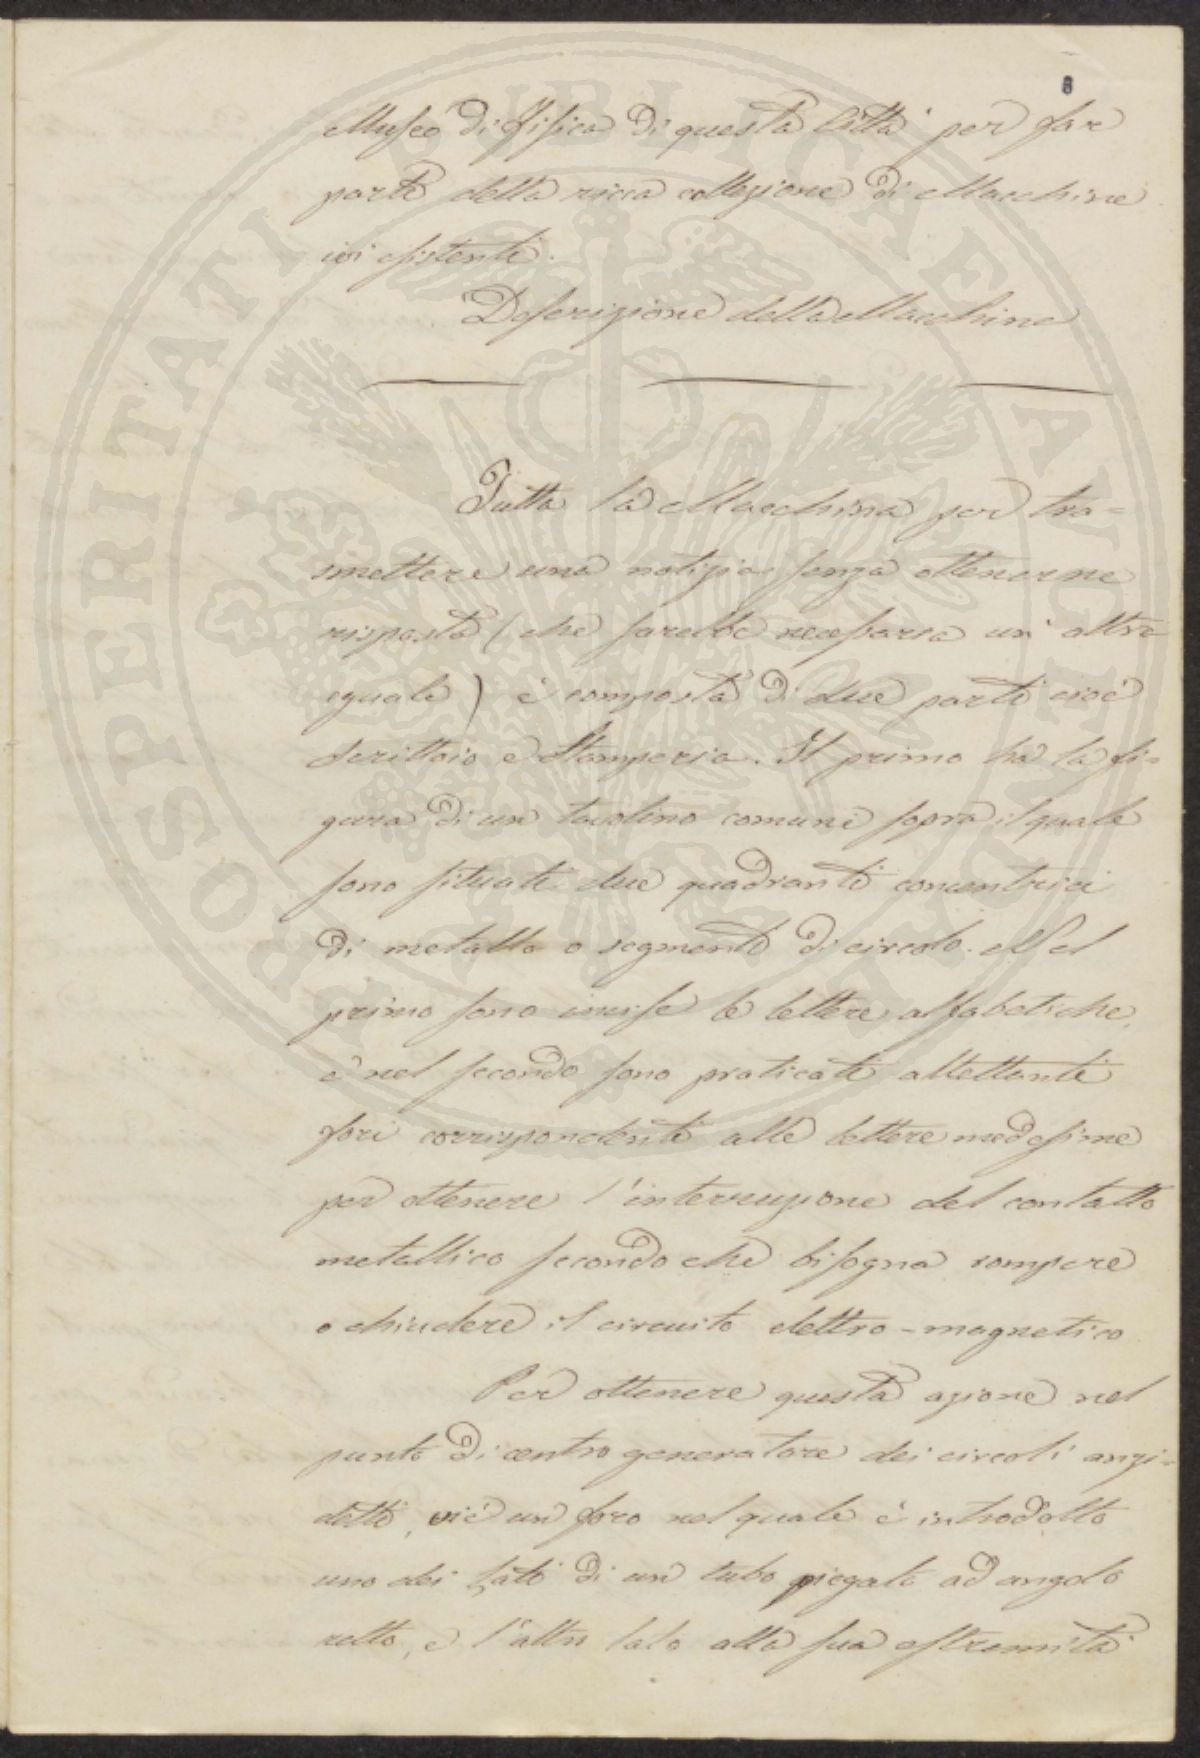 8
Museo di Fisica di questa Città per far
parte della ricca collezione di Macchine
ivi esistenti.
Descrizione della Macchina
Tutta la Macchina per tra=
smettere una notizia senza ottenerne
risposta (che sarebbe necessaria un' altra
eguale) è composta di due parti cioè
Scrittoio e Stamperia. Il primo ha la fi=
gura di un tavolino comune sopra il quale
sono situati due quadranti concentrici
di metallo o segmenti di circolo. Nel
primo sono incise le lettere alfabetiche,
e nel secondo sono praticati altettanti
fori corrispondenti alle lettere medesime
per ottenere l'interruzione del contatto
metallico secondo che bisogna rompere
o chiudere il circuito elettro-magnetico
Per ottenere questa azione nel
punto di centro generatore dei circoli anzi=
detti, vi è un foro nel quale è introdotto
uno dei lati di un tubo piegato ad angolo
retto, e l'altro lato alla sua estremità
PROSPERITATI PUBLICAE AUGENDAE